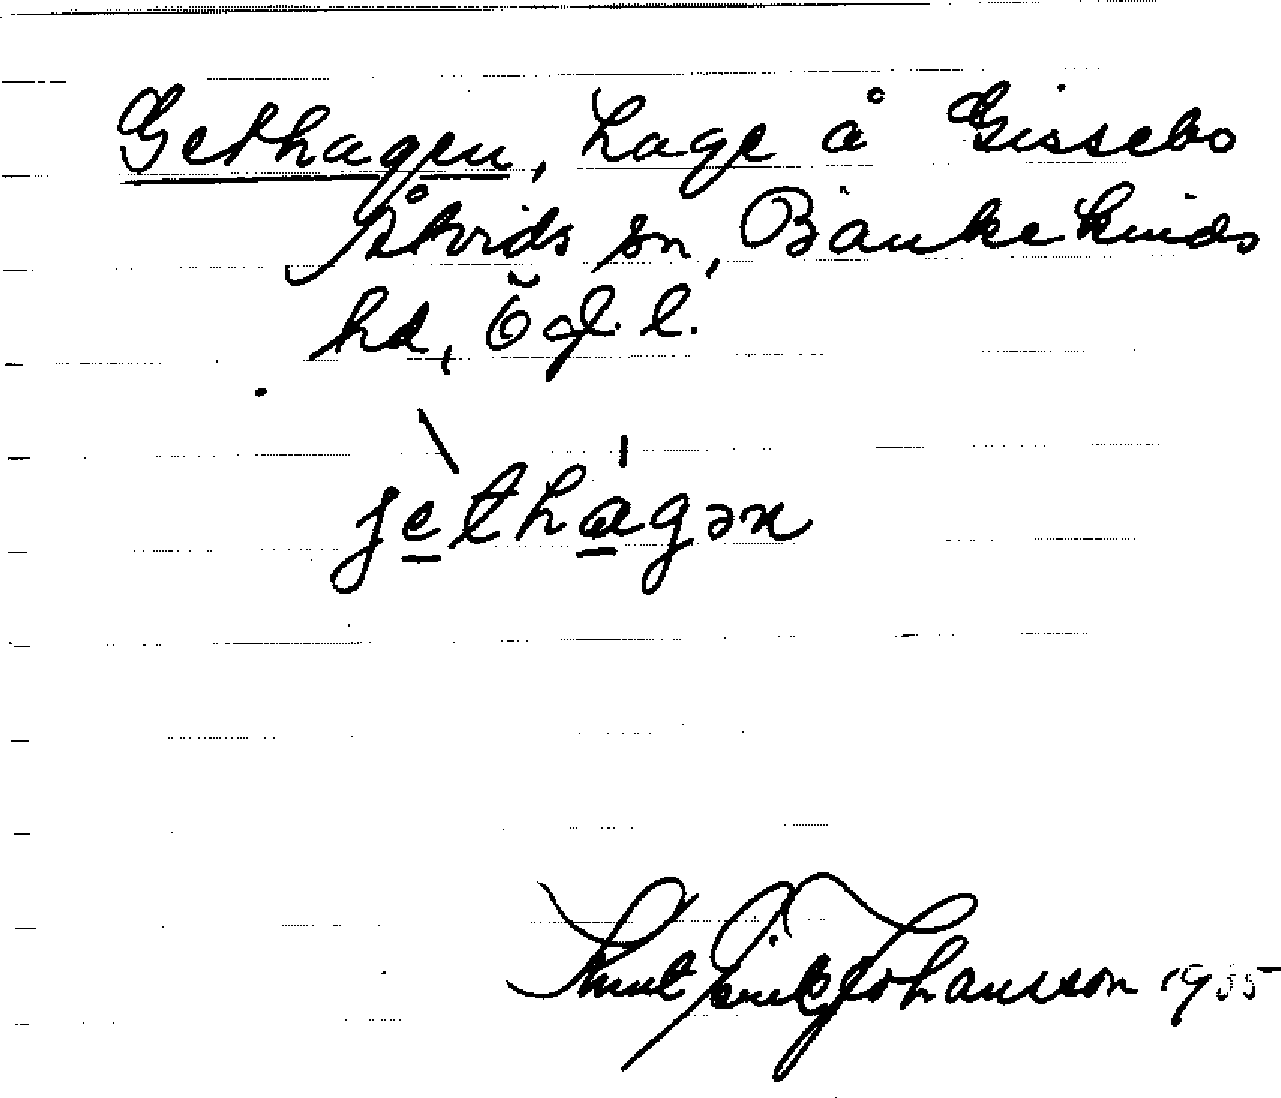 Gethagen, hage å Gissebo
Åtvids sn, Bankekinds
hd, Ögl.
jethagən
Knut Erik Johansson 1955